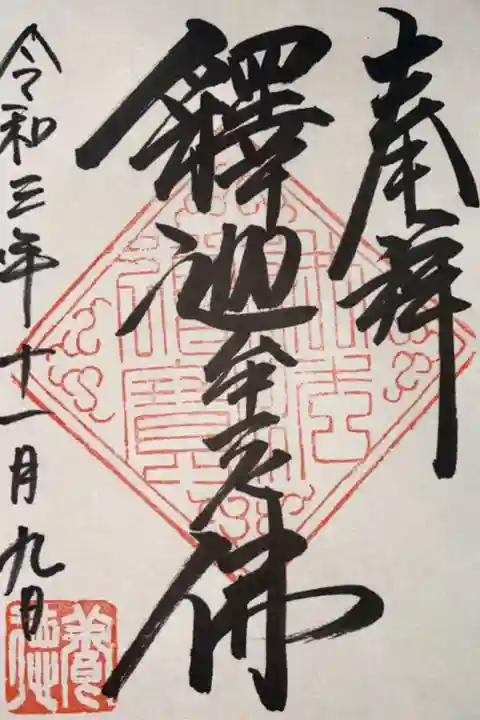 奉拜
釋迦牟尼佛
令和三年十一月九日
養德